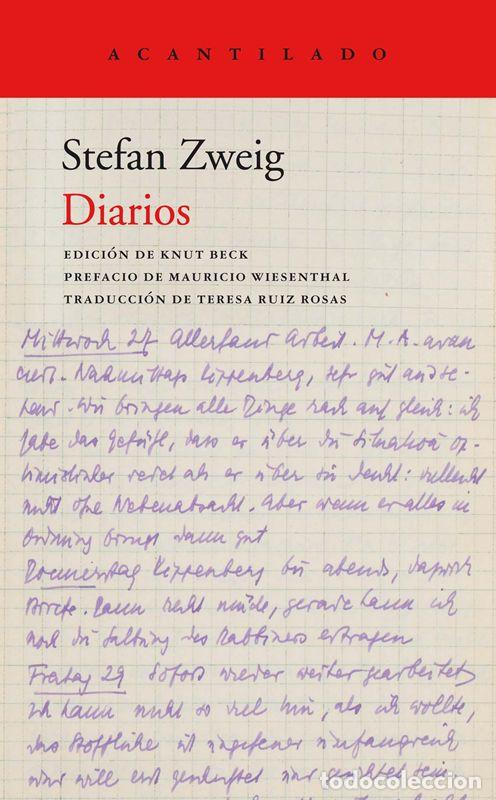 ACANTILADO
Stefan Zweig
Diarios
EDICIÓN DE KNUT BECK
PREFACIO DE MAURICIO WIESENTHAL
TRADUCCIÓN DE TERESA RUIZ ROSAS
Mittwoch 27 Allerhand Arbeit. M. A. avan
ciert. Nachmittags Kippenberg, sehr gut
Wir bringen alle Dinge auf gleich: ich
habe das Gefühl, dass er über die Situation op-
timistischer redet als er über sie denkt: vielleicht
nicht ohne Nebenabsicht. Aber wenn er alles in
Ordnung bringt dann gut
Donnerstag Kippenberg bis abends, dazwischen
Briefe. Dann recht müde, gerade kann ich
noch die des Rabbiners ertragen
Freitag 29 Sofort wieder weiter gearbeitet,
ich kann nicht so viel hin, als ich wollte,
das Stoffliche ist ungeheuer umfangreich
und will erst gesichtet und sein
todocoleccion